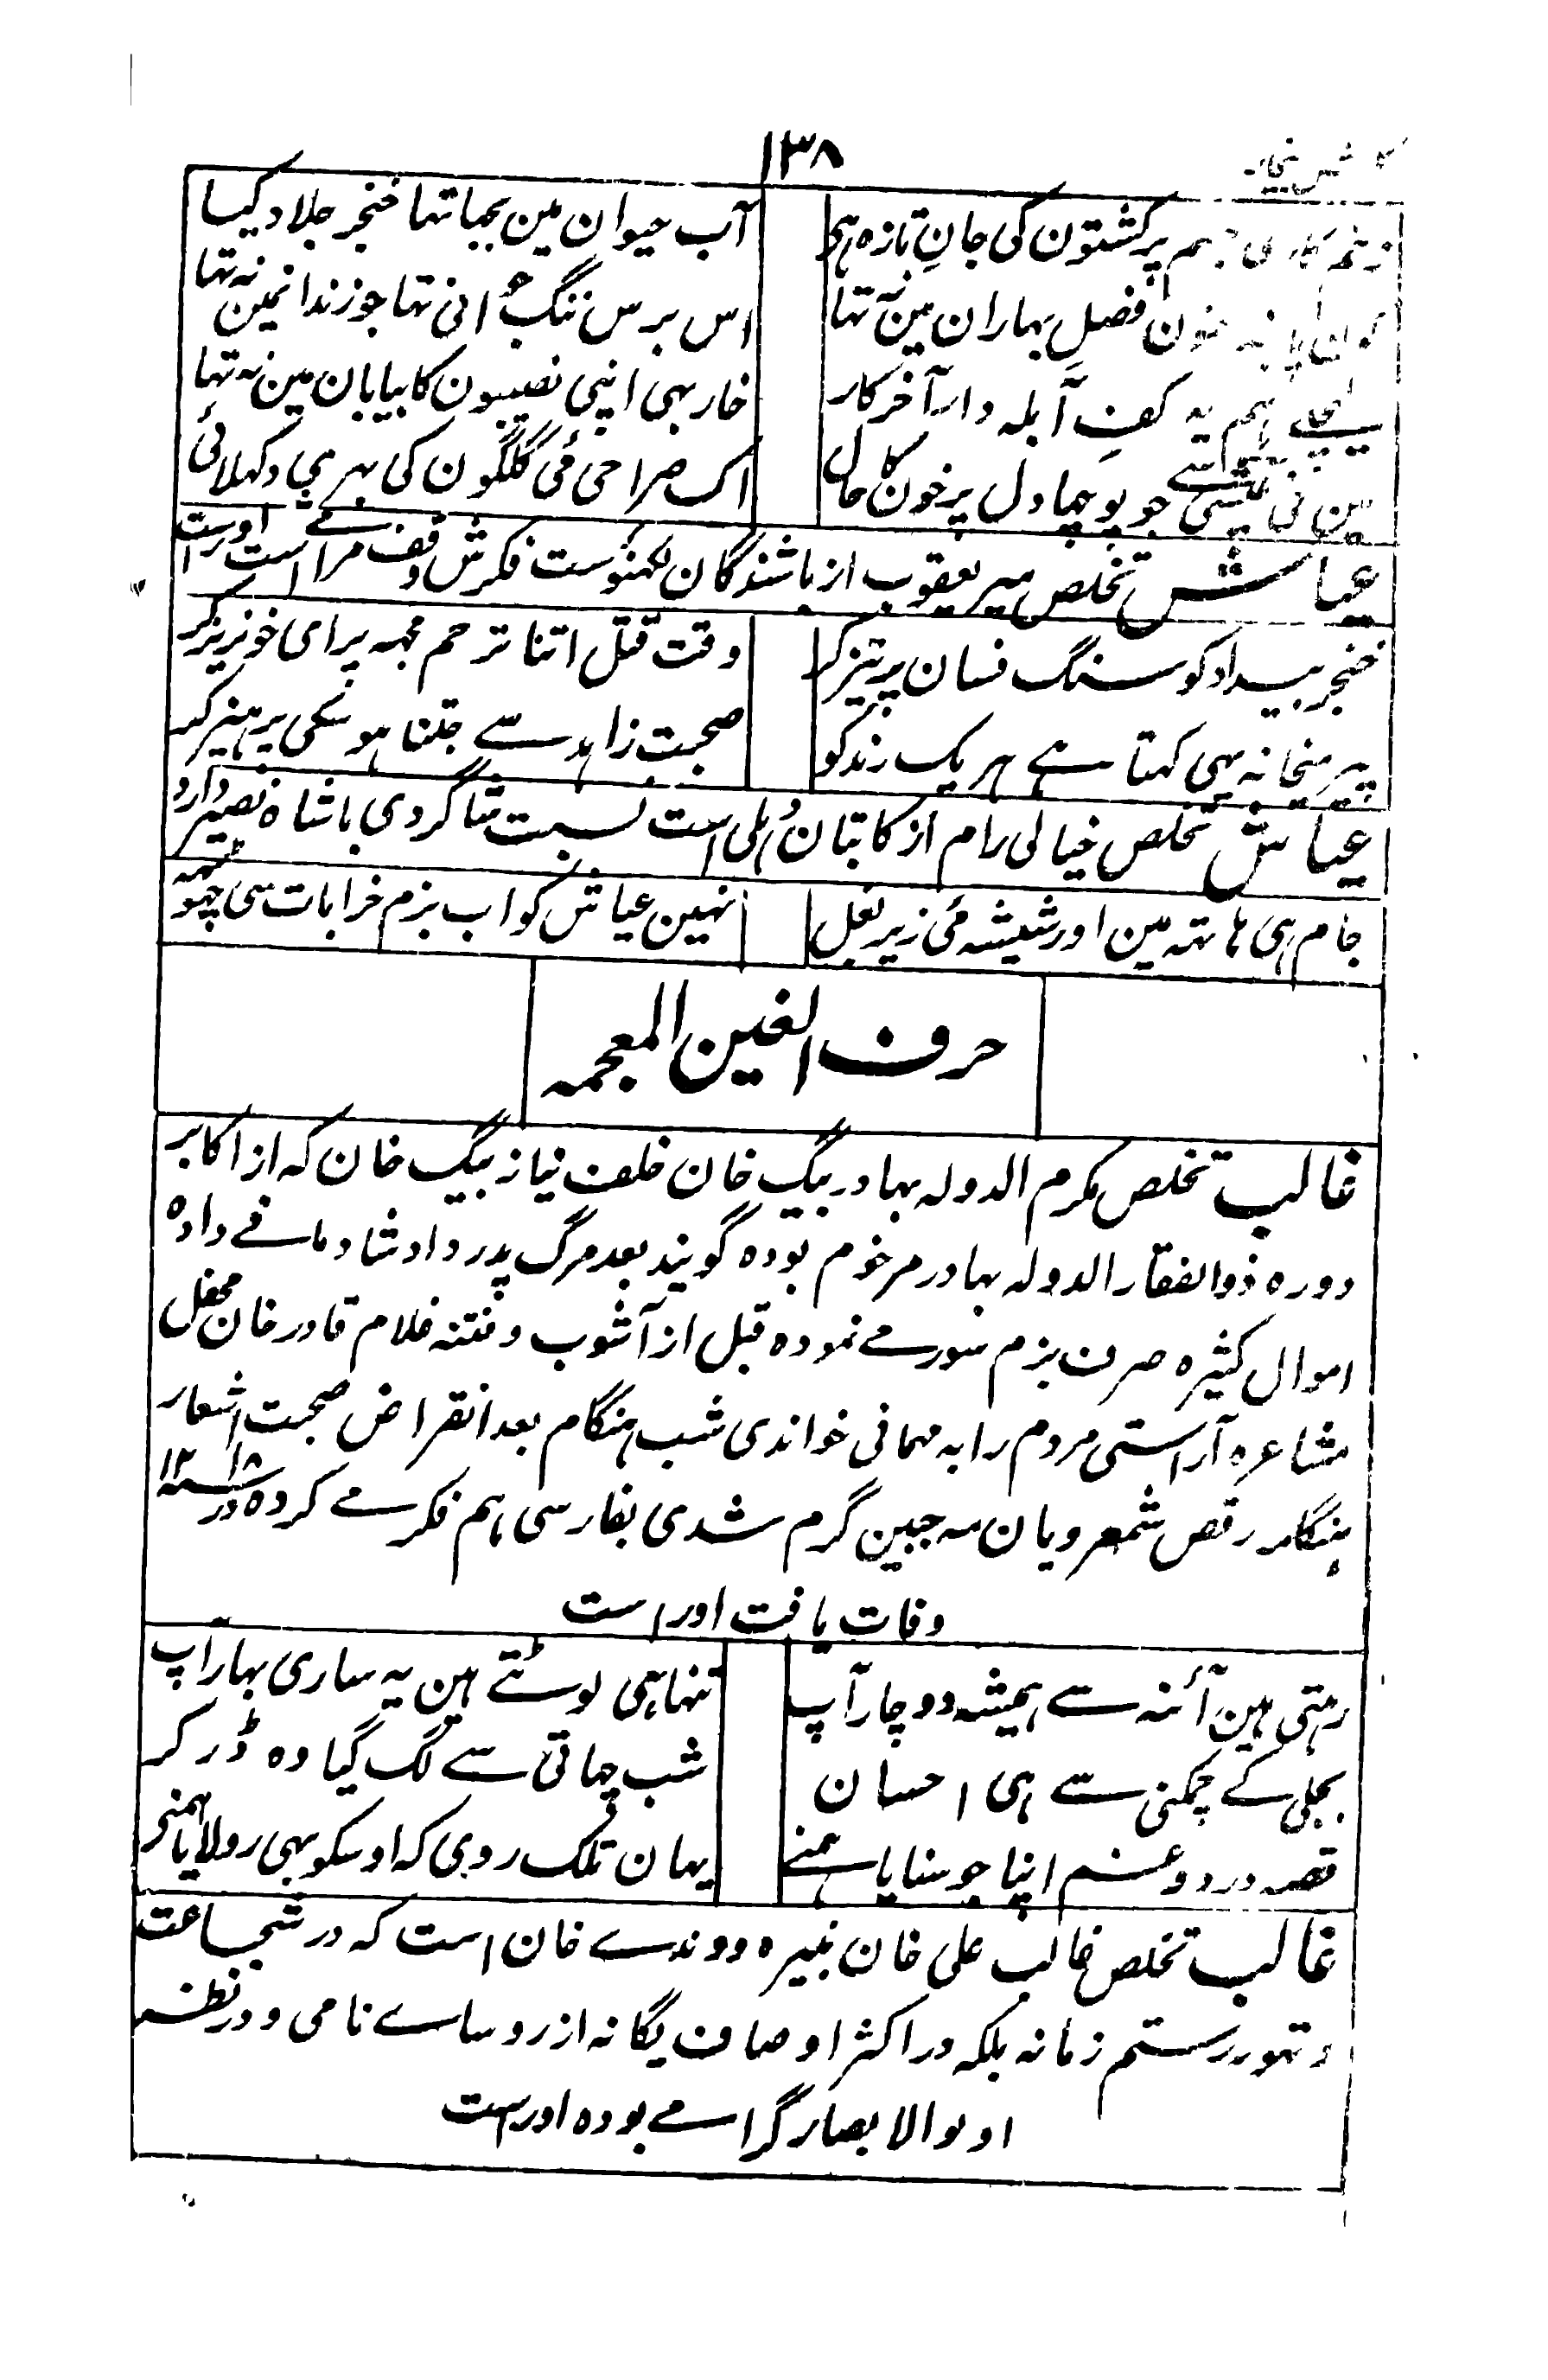 ۱۳۸
ہم پر کشتون کی جانِ تازہ ہی
آب حیوان مین بجہا تہا خنجر جلاد کیا
فصلِ بہاران مین نہ تہا
اس برس ننگ جوانی تہا جو زندانمین نہ تہا
ہم یہ کفِ آبلہ دار آخر کار
خار بہی اپنی نصیبون کا بیابان مین نہ تہا
مین نی جو پوچہا دل پر خون کا حال
اک صراحی مئی گلگون کی بہری دکہلائی
عیاش تخلص میر یعقوب از باشندگان لکہنوست فکرش وقف مراثی است اوراست
خنجر بیداد کو سنگ فسان پر تیز کر
وقت قتل اتنا ترحم مجہہ پر ای خونریز کر
پیر میخانہ یہی کہتا ہے ہر یک رند کو
صحبت زاہد سے جتنا ہو سکی پرہیز کر
عیاش تخلص خیالی رام از کاتبان دہلی است نسبت شاگردی با شاہ نصیر دارد
جام ہی ہاتہہ مین اور شیشہ مئی زیر بغل
نہین عیاش کو اب بزم خرابات سی چہوٹہہ
حرف الغین المعجمہ
غالب تخلص مکرم الدولہ بہادر بیگ خان خلف نیاز بیگ خان کہ از اکابر
دورہ ذوالفقار الدولہ بہادر مرحوم بودہ گویند بعد مرگ پدر داد شادمانے دادہ
اموال کثیرہ صرف بزم سورمے نمودہ قبل از آشوب و فتنہ غلام قادر خان محفل
مشاعرہ آراستی مردم را بہ مہمانی خواندی شب ہنگام بعد انقراض صحبت اشعار
ہنگامہ رقص شمعرویان مہ جبین گرم شدی بفارسی ہم فکر مے کردہ در ۱۲۱۸
وفات یافت اوراست
رہتی ہین آئنہ سے ہمیشہ دو چار آپ
تنہا ہی لوٹتے ہین یہ ساری بہار آپ
بجلی کے چمکنی سے ہی احسان
شب چہاتی سے لگ گیا وہ ڈر کر
قصہ درد و غم اپنا جو سنایا ہمنے
یہان تلک روی کہ اوسکو بہی رولایا ہمنے
غالب تخلص غالب علی خان نبیرہ دوندے خان است کہ در شجاعت
و تہور رستم زمانہ بلکہ در اکثر اوصاف یگانہ از روساے نامی و در نظر
اولوالابصار گرامے بودہ اوراست